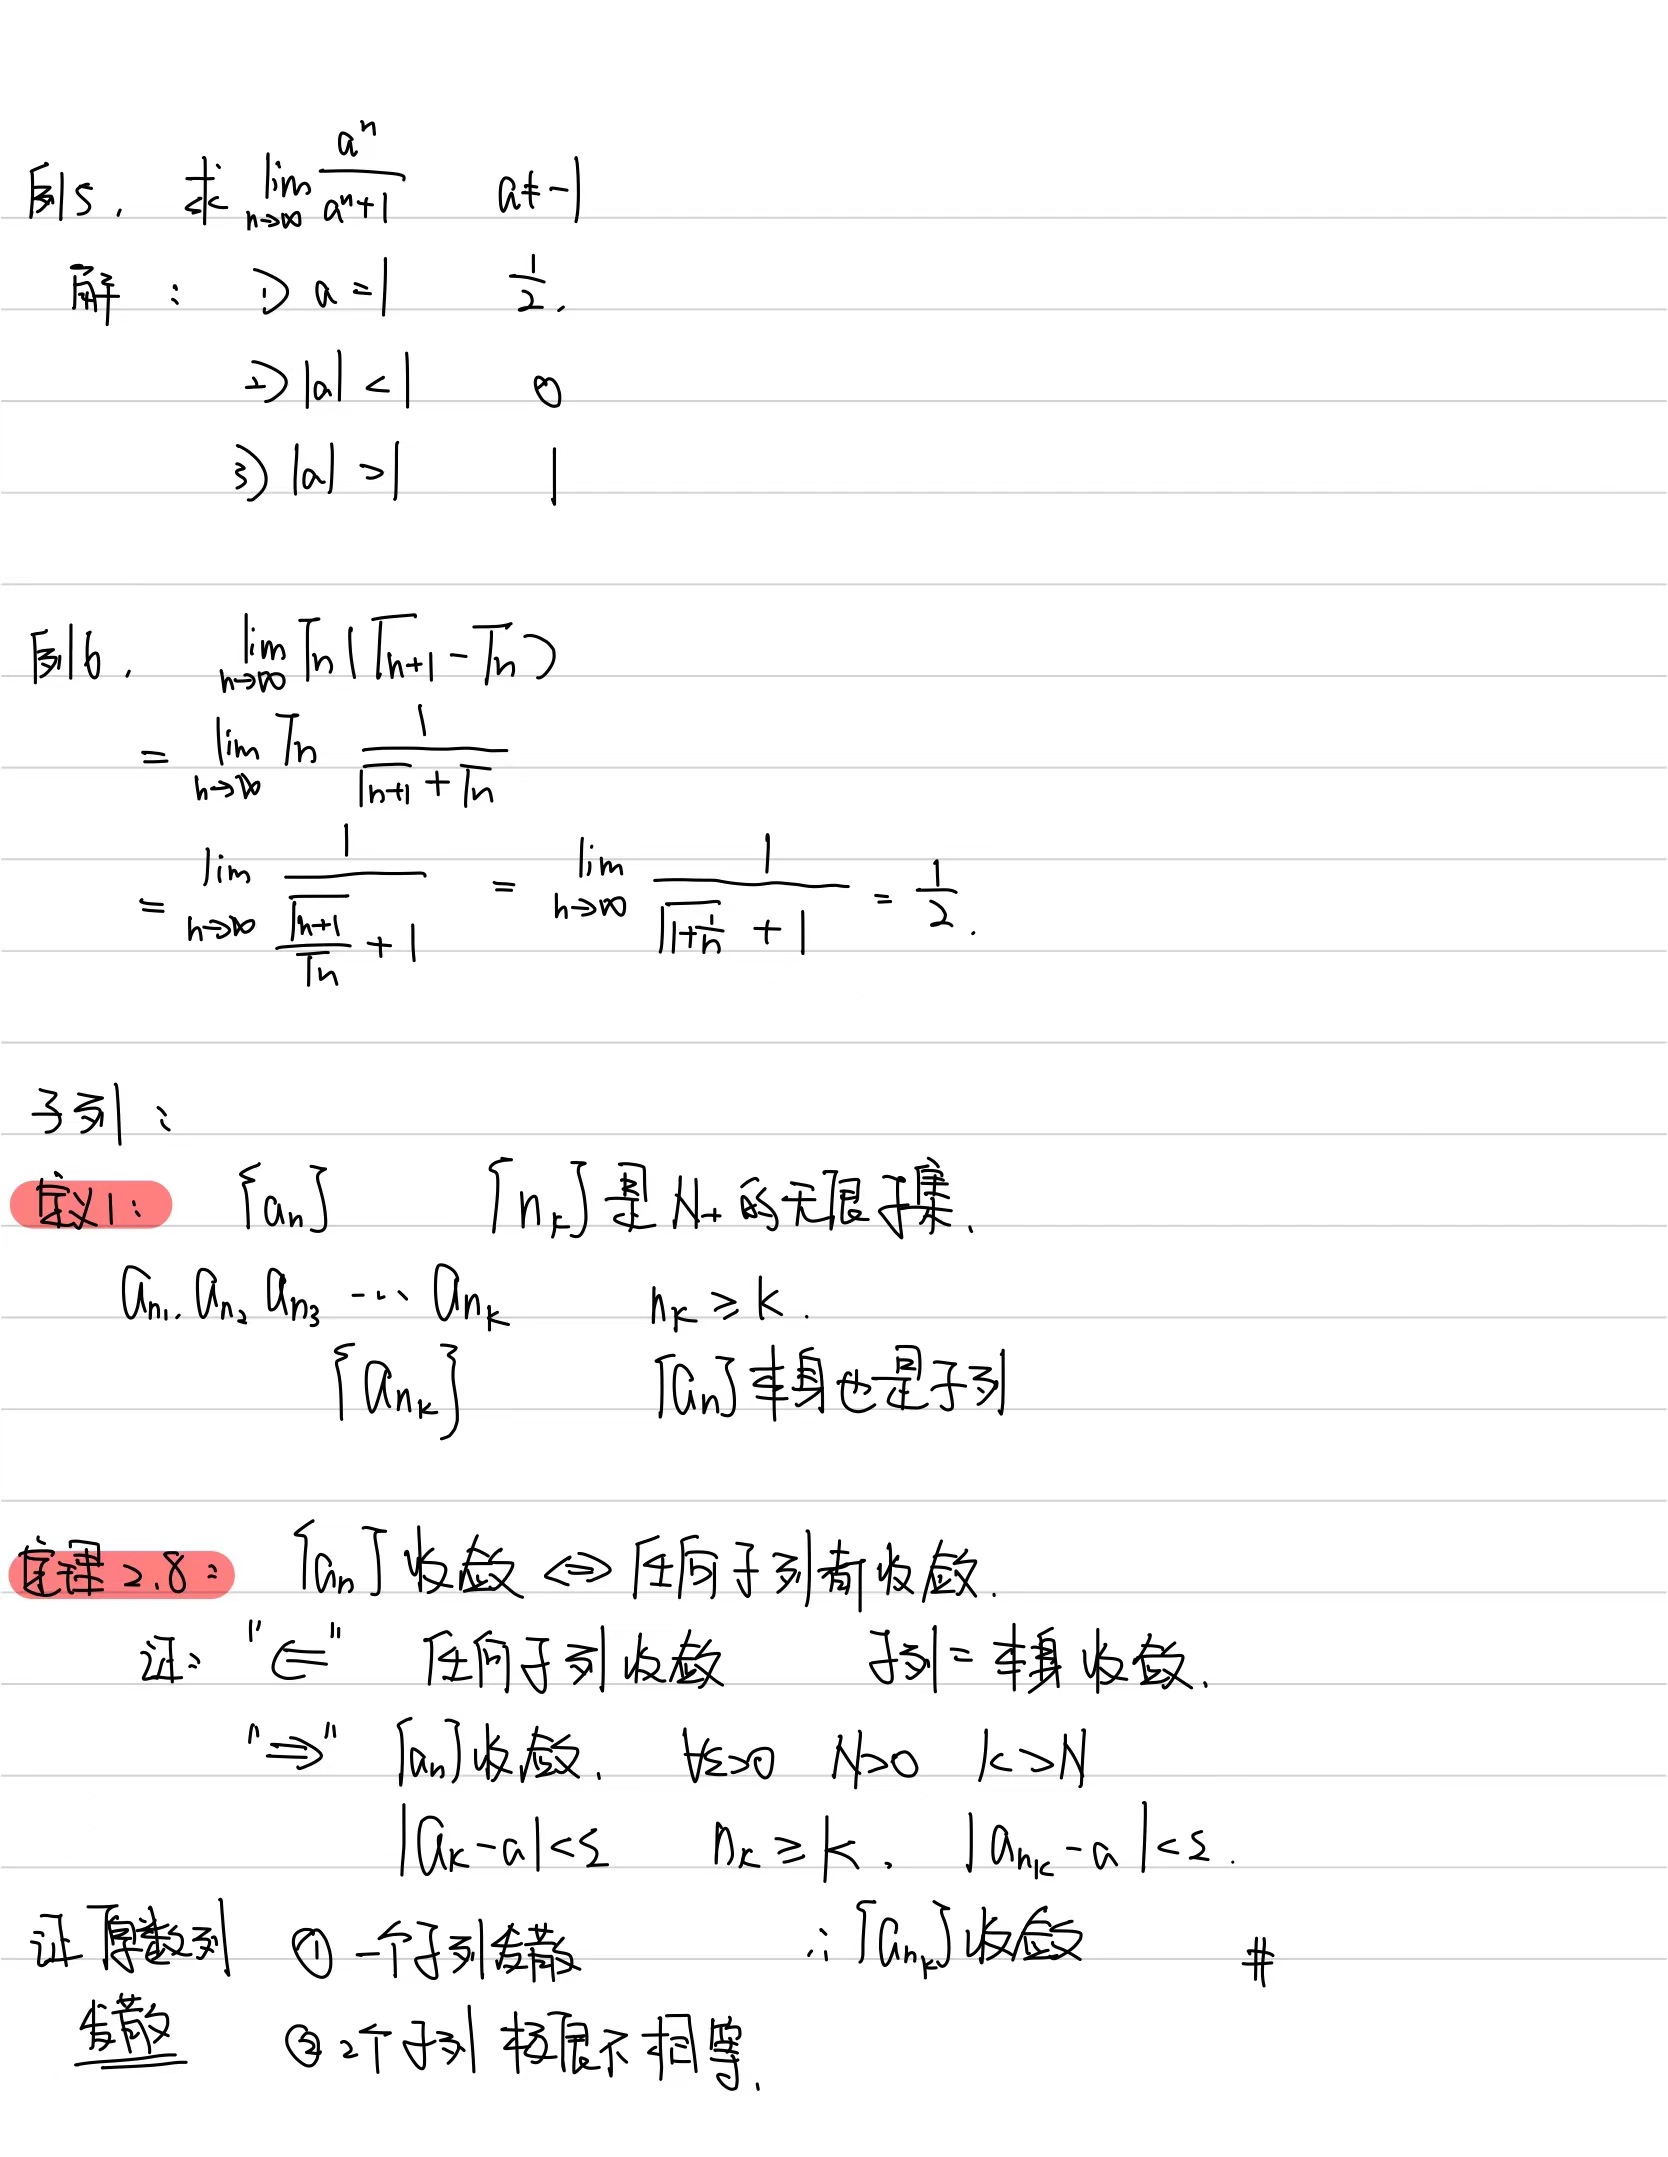 例5. 求 lim_{n→∞} a^n/(a^n+1) a≠-1
解: 1) a=1 1/2.
2) |a|<1 0
3) |a|>1 1
例6. lim_{n→∞} √n(√(n+1)-√n)
= lim_{n→∞} √n 1/(√(n+1)+√n)
= lim_{n→∞} 1/(√(n+1)/√n+1) = lim_{n→∞} 1/(√(1+1/n)+1) = 1/2.
子列:
定义1: {a_n} {n_k}是N_+的无限子集.
a_{n_1}. a_{n_2} a_{n_3} ... a_{n_k} n_k ≥ k.
{a_{n_k}} {a_n}本身也是子列
定理2.8: {a_n}收敛 ⇔ 任何子列都收敛.
证: "⇐" 任何子列收敛 子列=本身收敛.
"⇒" {a_n}收敛. ∀ε>0 N>0 k>N
|a_k-a|<ε n_k≥k. |a_{n_k}-a|<ε.
证原数列 ① 一个子列发散 ∴{a_{n_k}}收敛 #
发散 ② 2个子列极限不相等.